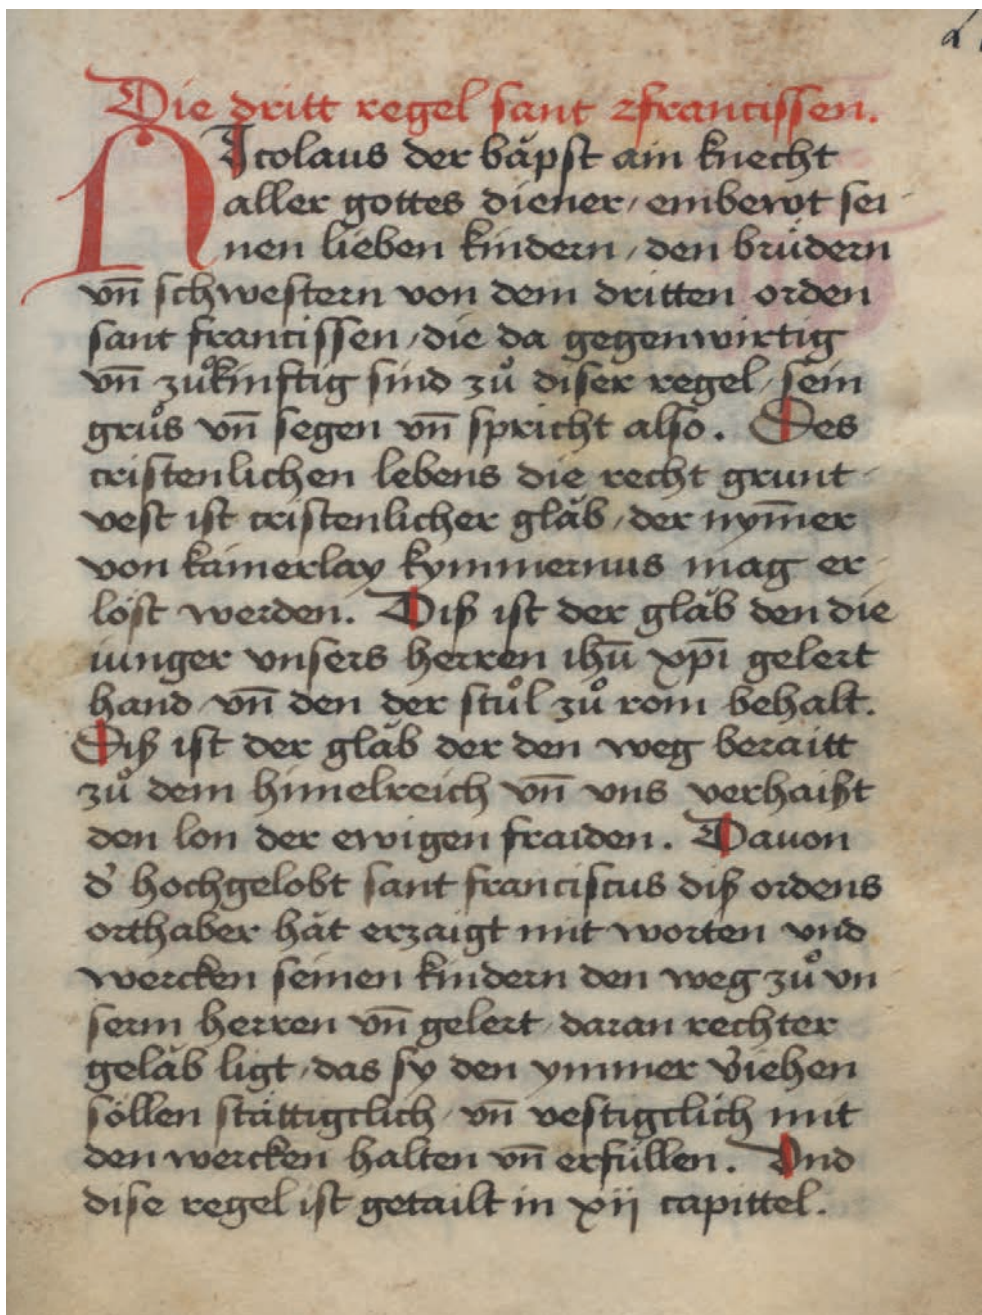 Die dritt regel sant francissen.
NIcolaus der bǎpst ain knecht
aller gottes diener / embewt sei-
nen lieben kindern / den brůdern
vn̄ schwestern von dem dritten orden
sant francissen / die da gegenwirtig
vn̄ zůkinftig sind zů diser regel / sein
grůs vn̄ segen vn̄ spricht also. Des
cristenlichen lebens die recht grunt-
vest ist cristenlicher glǎb / der nym̄er
von kainerlay kymmernus mag er-
löst werden. Diß ist der glǎb den die
iunger vnsers herren ihū xp̄i gelert
hand / vn̄ den der stůl zů rom behalt.
Diß ist der glǎb der den weg beraitt
zů dem himelreich vn̄ vns verhaißt
den lon der ewigen fraiden. Dauon
d' hochgelobt sant franciscus diß ordens
orthaber hǎt erzaigt mit worten vnd
wercken seinen kindern den weg zů vn
serm herren vn̄ gelert / daran rechter
gelǎb ligt / das sy den ymmer v'iehen
söllen stättigclich / vn̄ vestigclich mit
den wercken halten vn̄ erfüllen. Vnd
dise regel ist getailt in xij capittel.